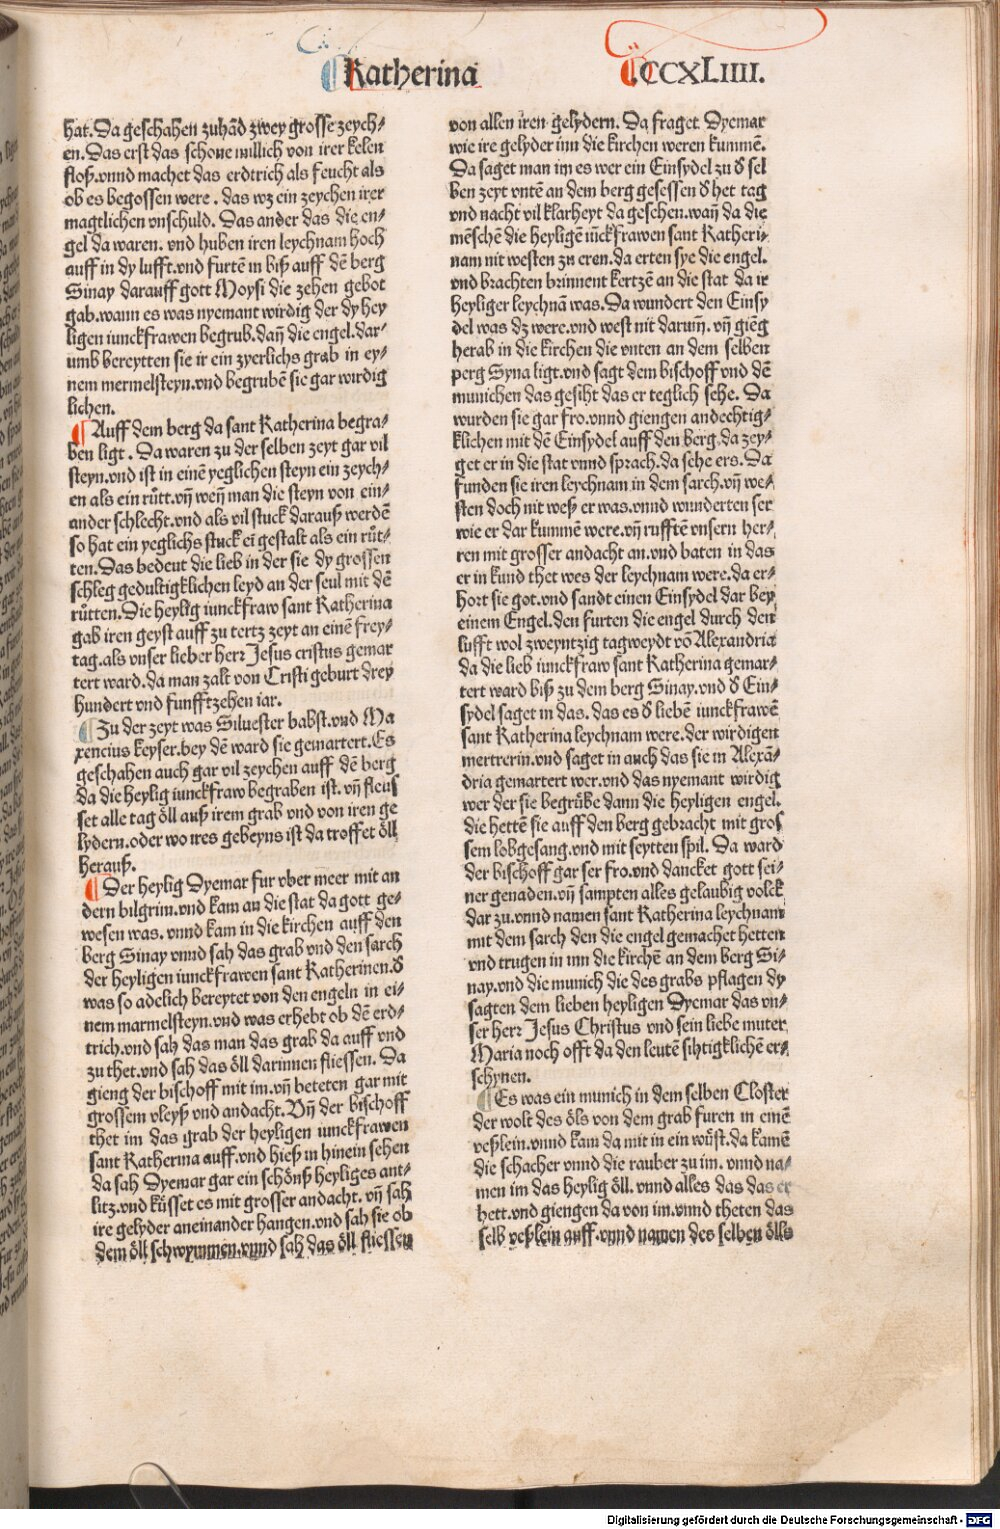 Katherina
CCXLIIII.
hat. Da geschahen zuhãd zwey grosse zeych⸗
en. Das erst das schone millich von irer kelen
floß. vnnd machet das erdtrich als feucht als
ob es begossen were. das wz ein zeychen irer
magtlichen vnschuld. Das ander das die en⸗
gel da waren. vnd huben iren leychnam hoch
auff in dy lufft. vnd furtẽ in biß auff dẽ berg
Sinay darauff gott Moysi die zehen gebot
gab. wann es was nyemant wirdig der dy hey
ligen iunckfrawen begrub. dañ die engel. dar⸗
umb bereytten sie ir ein zyerlichs grab in ey⸗
nem mermelsteyn. vnd begrubẽ sie gar wirdig
lichen.
Auff dem berg da sant Katherina begra⸗
ben ligt. Da waren zu der selben zeyt gar vil
steyn. vnd ist in einẽ yeglichen steyn ein zeych⸗
en als ein rütt. vñ weñ man die steyn von ein⸗
ander schlecht. vnd als vil stuck darauß werdẽ
so hat ein yeglichs stuck eĩ gestalt als ein rüt⸗
ten. Das bedeut die lieb in der sie dy grossen
schleg gedultigklichen leyd an der seul mit dẽ
rütten. Die heylig iunckfraw sant Katherina
gab iren geyst auff zu tertz zeyt an einẽ frey⸗
tag. als vnser lieber herr Jesus cristus gemar
tert ward. da man zalt von Cristi geburt drey
hundert vnd funfftzehen iar.
Zu der zeyt was Siluester babst. vnd Ma
xencius keyser. bey dẽ ward sie gemartert. Es
geschahen auch gar vil zeychen auff dẽ berg
da die heylig iunckfraw begraben ist. vñ fleus
set alle tag öll auß irem grab vnd von iren ge
lydern. oder wo ires gebeyns ist da troffet öll
herauß.
Der heylig Dyemar fur vber meer mit an
dern bilgrim. vnd kam an die stat da gott ge⸗
wesen was. vnnd kam in die kirchen auff den
berg Sinay vnnd sah das grab vnd den sarch
der heyligen iunckfrawen sant Katherinen. ð
was so adelich bereytet von den engeln in ei⸗
nem marmelsteyn. vnd was erhebt ob dẽ erd⸗
trich. vnd sah das man das grab da auff vnd
zu thet. vnd sah das öll darinnen fliessen. Da
gieng der bischoff mit im. vñ beteten gar mit
grossem vleyß vnd andacht. Vñ der bischoff
thet im das grab der heyligen iunckfrawen
sant Katherina auff. vnd hieß in hinein sehen
da sah Dyemar gar ein schönß heyliges ant⸗
litz. vnd küsset es mit grosser andacht. vñ sah
ire gelyder aneinander hangen. vnd sah sie ob
dem öll schwymmen. vnnd sah das öll fliessen
von allen iren gelydern. Da fraget Dyemar
wie ire gelyder inn die kirchen weren kummẽ.
Da saget man im es wer ein Einsydel zu ð sel
ben zeyt vntẽ an dem berg gesessen ð het tag
vnd nacht vil klarheyt da gesehen. wañ da die
mẽschẽ die heyligẽ iũckfrawen sant Katheri⸗
nam nit westen zu eren. da erten sye die engel.
vnd brachten brinnent kertzẽ an die stat da ir
heyliger leychnã was. Da wundert den Einsy
del was dz were. vnd west nit darum̃. vñ giẽg
herab in die kirchen die vnten an dem selben
perg Syna ligt. vnd sagt dem bischoff vnd dẽ
munichen das gesiht das er teglich sehe. Da
wurden sie gar fro. vnnd giengen andechtig⸗
klichen mit dẽ Einsydel auff den berg. da zey⸗
get er in die stat vnnd sprach. da sehe ers. Da
funden sie iren leychnam in dem sarch. vñ we⸗
sten doch nit weß er was. vnnd wunderten ser
wie er dar kummẽ were. vñ rufftẽ vnsern her⸗
ren mit grosser andacht an. vnd baten in das
er in kund thet wes der leychnam were. da er⸗
hort sie got. vnd sandt einen Einsydel dar bey
einem Engel. den furten die engel durch den
lufft wol zweyntzig tagweydt võ Alexandria
da die lieb iunckfraw sant Katherina gemar⸗
tert ward biß zu dem berg Sinay. vnd ð Ein⸗
sydel saget in das. das es ð liebẽ iunckfrawẽ
sant Katherina leychnam were. der wirdigen
mertrerin. vnd saget in auch das sie in Alexã⸗
dria gemartert wer. vnd das nyemant wirdig
wer der sie begrübe dann die heyligen engel.
die hettẽ sie auff den berg gebracht mit gros
sem lobgesang. vnd mit seytten spil. Da ward
der bischoff gar ser fro. vnd dancket gott sei⸗
ner genaden. vñ sampten alles gelaubig volck
dar zu. vnnd namen sant Katherina leychnam
mit dem sarch den die engel gemachet hetten
vnd trugen in inn die kirchẽ an dem berg Si⸗
nay. vnd die munich die des grabs pflagen dy
sagten dem lieben heyligen Dyemar das vn⸗
ser herr Jesus Christus vnd sein liebe muter
Maria noch offt da den leutẽ sihtigklichẽ er⸗
schynen.
Es was ein munich in dem selben Closter
der wolt des öls von dem grab furen in einẽ
veßlein. vnnd kam da mit in ein wüst. da kamẽ
die schacher vnnd die rauber zu im. vnnd na⸗
men im das heylig öll. vnnd alles das das er
hett. vnd giengen da von im. vnnd theten das
selb veßlein auff. vnnd namen des selben ölls
Digitalisierung gefördert durch die Deutsche Forschungsgemeinschaft - DFG